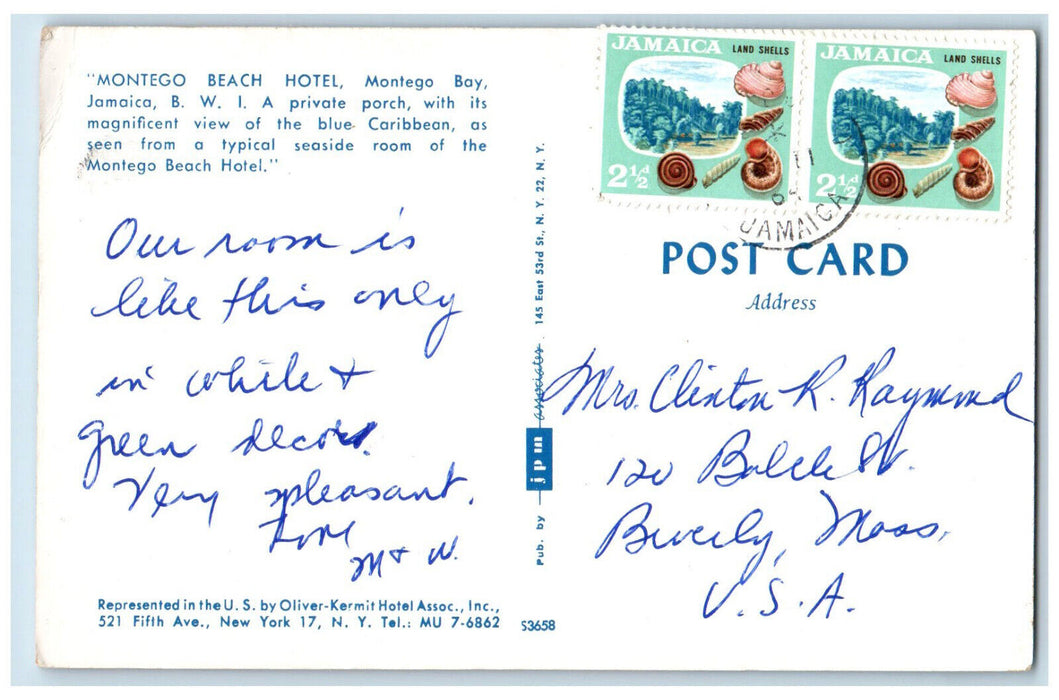 "MONTEGO BEACH HOTEL, Montego Bay,
Jamaica, B. W. I. A private porch, with its
magnificent view of the blue Caribbean, as
seen from a typical seaside room of the
Montego Beach Hotel."
Our room is
like this only
in white +
green decor.
Very pleasant.
Love
M + W.
Represented in the U. S. by Oliver-Kermit Hotel Assoc., Inc.,
521 Fifth Ave., New York 17, N. Y. Tel.: MU 7-6862
S3658
Pub. by jpm associates 145 East 53rd St., N. Y. 22, N. Y.
JAMAICA LAND SHELLS
2½d
JAMAICA LAND SHELLS
2½d
11
JAMAICA
POST CARD
Address
Mrs. Clinton R. Raymond
120 St.
Beverly, Mass.
U. S. A.